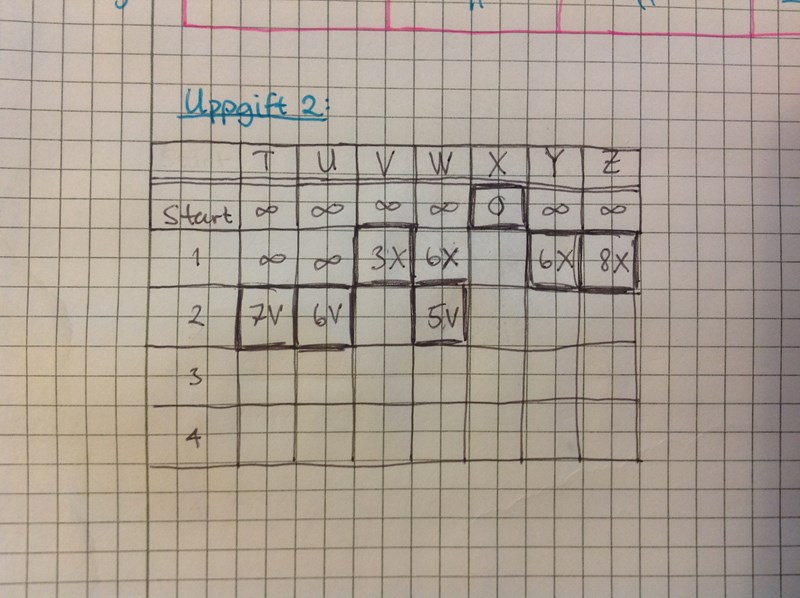 Uppgift 2:
T U V W X Y Z
Start ∞ ∞ ∞ ∞ 0 ∞ ∞
1 ∞ ∞ 3X 6X 6X 8X
2 7V 6V 5V
3
4